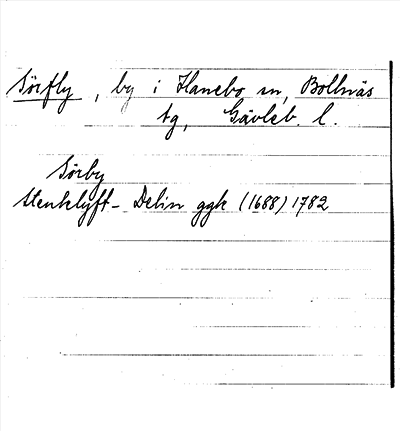 Sörfly, by i Hanebo sn, Bollnäs
tg, Gävleb. l.
Sörby
Stenklyft- Delin ggk (1688) 1782